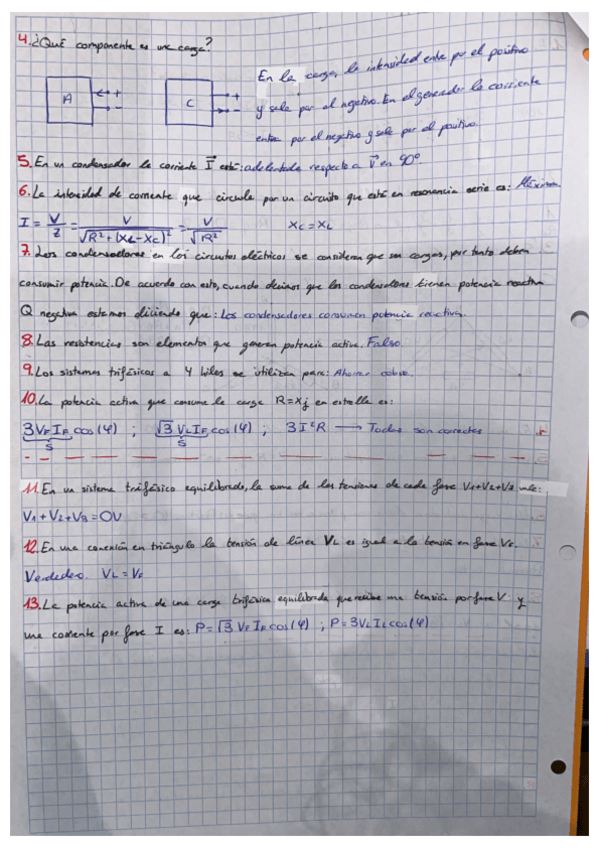 4.¿Qué componente es una carga?
A
C
En la carga, la intensidad entra por el positivo
y sale por el negativo. En el generador la corriente
entra por el negativo y sale por el positivo.
5. En un condensador la corriente I⃗ está: adelantada respecto a V⃗ en 90º.
6. La intensidad de corriente que circula por un circuito que está en resonancia serie es: Máxima.
I = V/Z = V/√(R² + (XL-XC)²) = V/√R² XC = XL
7. Los condensadores en los circuitos eléctricos se consideran que son cargas, por tanto deben
consumir potencia. De acuerdo con esto, cuando decimos que los condensadores tienen potencia reactiva
Q negativa estamos diciendo que: Los condensadores consumen potencia reactiva.
8. Las resistencias son elementos que generan potencia activa. Falso.
9. Los sistemas trifásicos a 4 hilos se utilizan para: Ahorrar cobre.
10. La potencia activa que consume la carga R=Xj en estrella es:
3VF IF cos(φ) ; √3 VL IF cos(φ) ; 3I²R ⟶ Todas son correctas
S S
11. En un sistema trifásico equilibrado, la suma de las tensiones de cada fase V1+V2+V3 vale:
V1 + V2 + V3 = 0V
12. En una conexión en triángulo la tensión de línea VL es igual a la tensión en fase VF.
Verdadero. VL = VF
13. La potencia activa de una carga trifásica equilibrada que recibe una tensión por fase V y
una corriente por fase I es: P = √3 VF IF cos(φ) ; P = 3VL IL cos(φ)